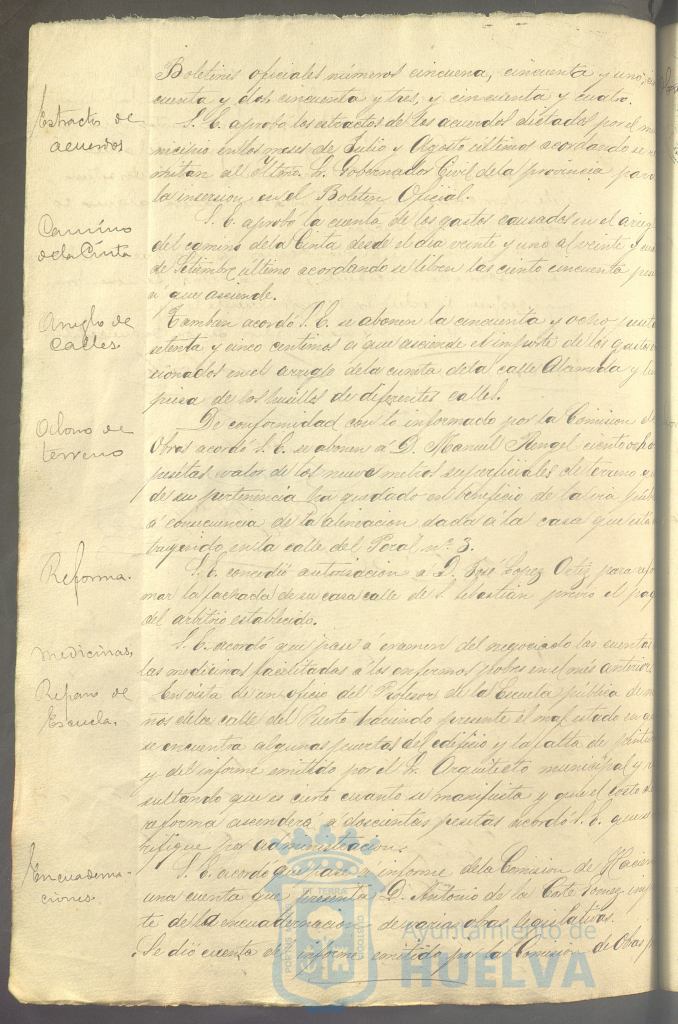 Boletines oficiales números cincuena, cincuenta y uno, cin
cuenta y dos, cincuenta y tres, y cincuenta y cuatro.
Estractos de
acuerdos
S. E. aprobó los estractos de los acuerdos dictados por el mu
nicipio en los meses de Julio y Agosto últimos acordando se re
mitan al Iltmo. Sr. Gobernador Civil de la provincia para
la insercion en el Boletin Oficial.
Camino
de la Cinta
S. E. aprobó la cuenta de los gastos causados en el arreg
del camino de la Cinta desde el dia veinte y uno al veinte y
de Setiembre último acordando se libren las ciento cincuenta pese
á que asciende.
Arreglo de
Calles.
Tambien acordó S. E. se abonen la cincuenta y ocho peseta
setenta y cinco centimos á que asciende el importe de los gastos
cionados en el arreglo de la cuneta de la calle Alameda y lim
pieza de los husillos de diferentes calles.
Abono de
terreno
De conformidad con lo informado por la Comision de
Obras acordó S. E. se abonen á D. Manuel Rengel ciento ocho
pesetas valor de los nueve metros superficiales de terreno q
de su pertenencia ha quedado en beneficio de la via públ
á consecuencia de la alineacion dada á la casa que está
truyendo en la calle del Peral nº 3.
Reforma.
S. E. concedió autorisacion a D. José Lopez Ortiz para refor
mar la fachada de su casa calle de S. Sebastian previo el pag
del arbitrio establecido.
Medicinas,
S. E. acordó que pase á examen del negociado las cuentas
las medicinas facilitadas á los enfermos pobres en el mes anterior.
Reparo de
Escuela.
En vista de un oficio del Profesor de la Escuela pública de ni
nos de la calle del Puerto haciendo presente el mal estado en q
se encuentra algunas puertas del edificio y la falta de pintur
y del informe emitido por el Sr. Arquitecto municipal y re
sultando que es cierto cuanto se manifiesta y que el coste de
reforma ascenderá á doscientas pesetas acordó S. E. que se
rifique por administracion.
Encuaderna-
ciones.
S. E. acordó que pase á informe de la Comision de Hacien
una cuenta que presenta D. Antonio de la Corte Gomez impor
te de la encuadernacion de varias obras legislativas.
Se dió cuenta del informe emitido por la Comision de Obras p
Ayuntamiento de
HUELVA